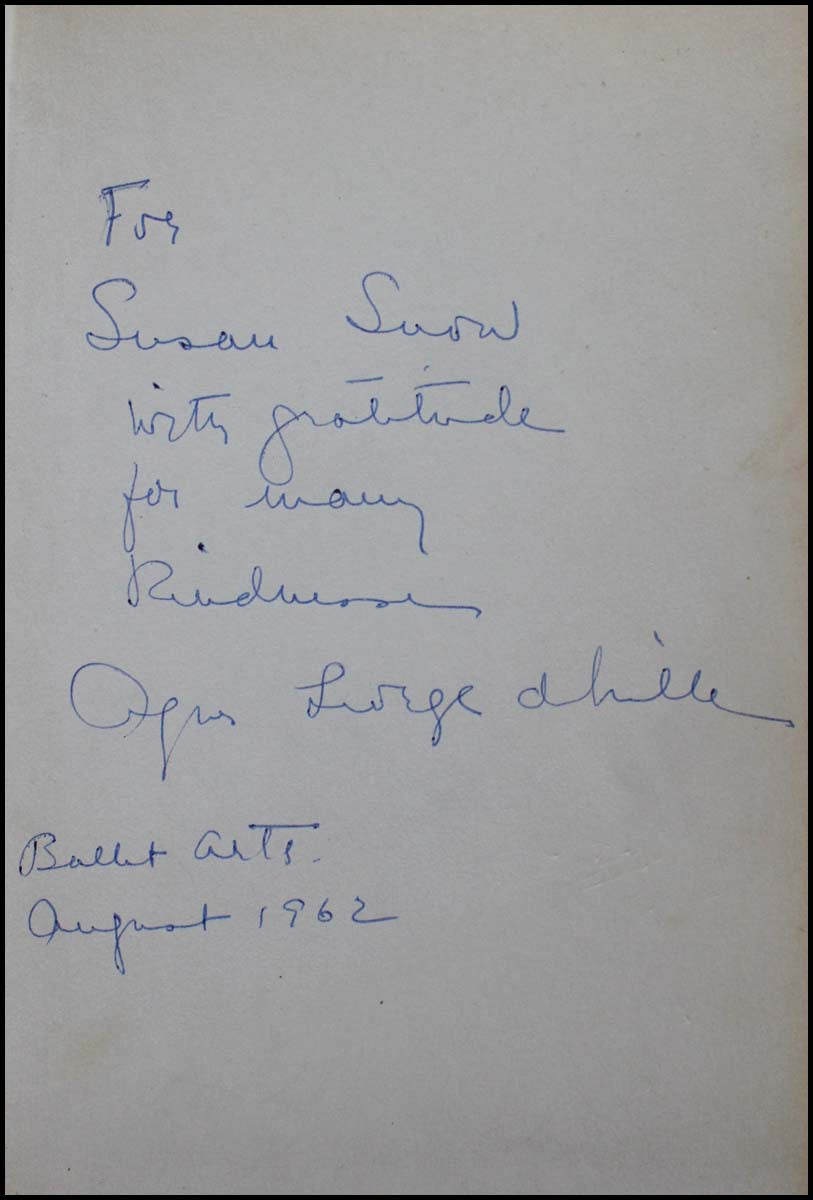 For
Susan Snow
with gratitude
for many
Kindnesses
Agnes George de Mille
Ballet Arts.
August 1962